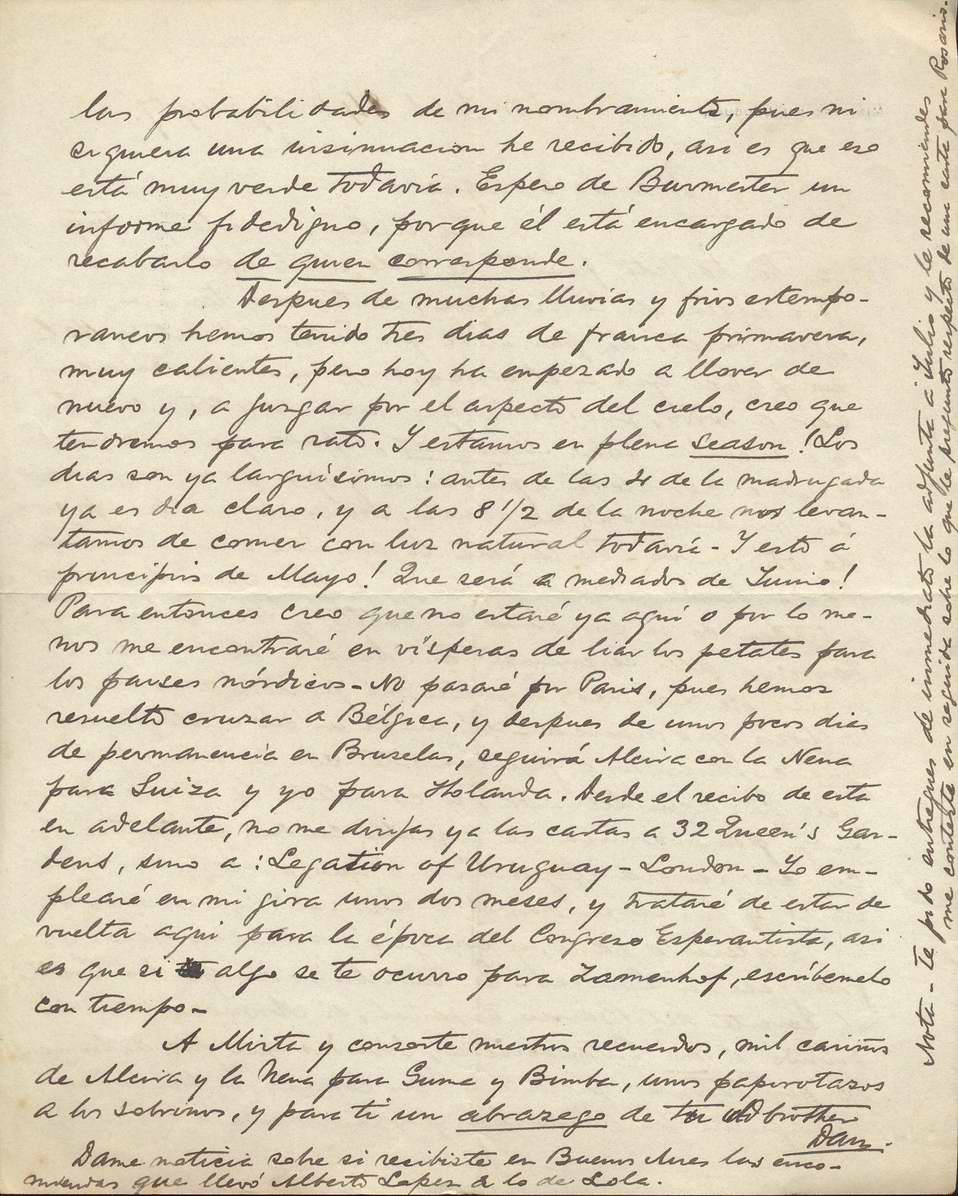 las probabilidades de mi nombramiento, pues ni
siquiera una insinuacion he recibido, asi es que eso
está muy verde todavía. Espero de Burmester un
informe fidedigno, porque él está encargado de
recabarlo de quien corresponde.
Despues de muchas lluvias y frios estempo-
raneos hemos tenido tres dias de franca primavera,
muy calientes, pero hoy ha empezado a llover de
nuevo y, a juzgar por el aspecto del cielo, creo que
tendremos para rato. Y estamos en plena season! Los
dias son ya larguísimos: antes de las 4 de la madrugada
ya es dia claro, y a las 8 1/2 de la noche nos levan-
tamos de comer con luz natural todavía - Y esto á
principios de Mayo! Que será a mediados de Junio!
Para entonces creo que no estaré ya aquí o por lo me-
nos me encontraré en vísperas de liar los petates para
los paises nórdicos - No pasaré por Paris, pues hemos
resuelto cruzar a Bélgica, y despues de unos pocos dias
de permanencia en Bruselas, seguirá Alcira con la Nena
para Suiza y yo para Holanda. Desde el recibo de esta
en adelante, no me dirijas ya las cartas a 32 Queen's Gar-
dens, sino a: Legation of Uruguay - London - Yo em-
plearé en mi gira unos dos meses, y trataré de estar de
vuelta aqui para la época del Congreso Esperantista, asi
es que si algo se te ocurre para Zamenhof, escríbemelo
con tiempo -
A Mirta y consorte nuestros recuerdos, mil cariños
de Alcira y la Nena para Guma y Bimba, unos paporotazos
a los sobrinos, y para ti un abrazego de tu old brother
Dan.
Dame noticia sobre si recibiste en Buenos Aires las enco-
miendas que llevó Alberto Lopez a lo de Lola.
Nota - Te pido entregues de inmediato la adjunta á Julio y le recomiendes
me conteste en seguida sobre lo que le pregunto respecto de una carta para Rosario.